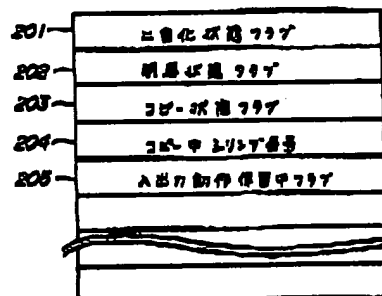 201 二重化状態フラグ
202 状態フラグ
203 コピー状態フラグ
204 コピー中シリンダ番号
205 入出力動作保留中フラグ